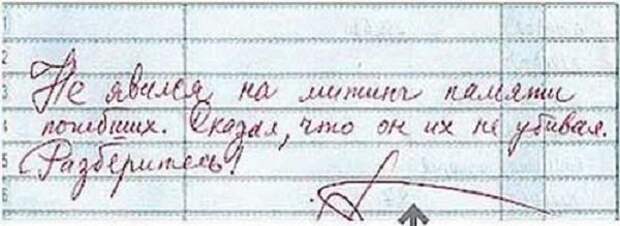 1
2
3 Не явился на митинг памяти
4 погибших. Сказал, что он их не убивал.
5 Разберитесь!
6